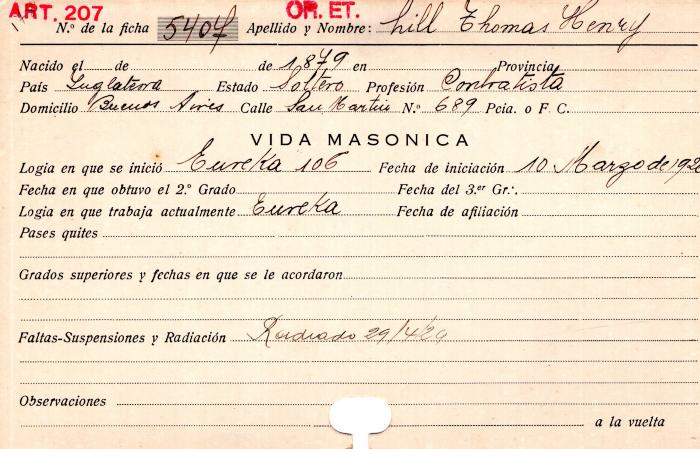 ART. 207 OR. ET.
N.º de la ficha 5407 Apellido y Nombre: Hill Thomas Henry
Nacido el de de 1879 en Provincia
País Inglaterra Estado Soltero Profesión Contratista
Domicilio Buenos Aires Calle San Martin N.º 689 Pcia. o F. C.
VIDA MASONICA
Logia en que se inició Eureka 106 Fecha de iniciación 10 Marzo de 192
Fecha en que obtuvo el 2.º Grado Fecha del 3.er Gr∴
Logia en que trabaja actualmente Eureka Fecha de afiliación
Pases quites
Grados superiores y fechas en que se le acordaron
Faltas-Suspensiones y Radiación Radiado 29/4/29
Observaciones
a la vuelta